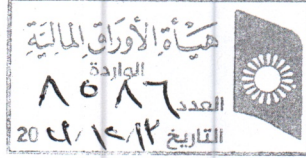 هَيْأَةُ الأَوْرَاقِ المَالِيَّةِ
الواردة
العدد ٨٥٨٦
التاريخ / / 20